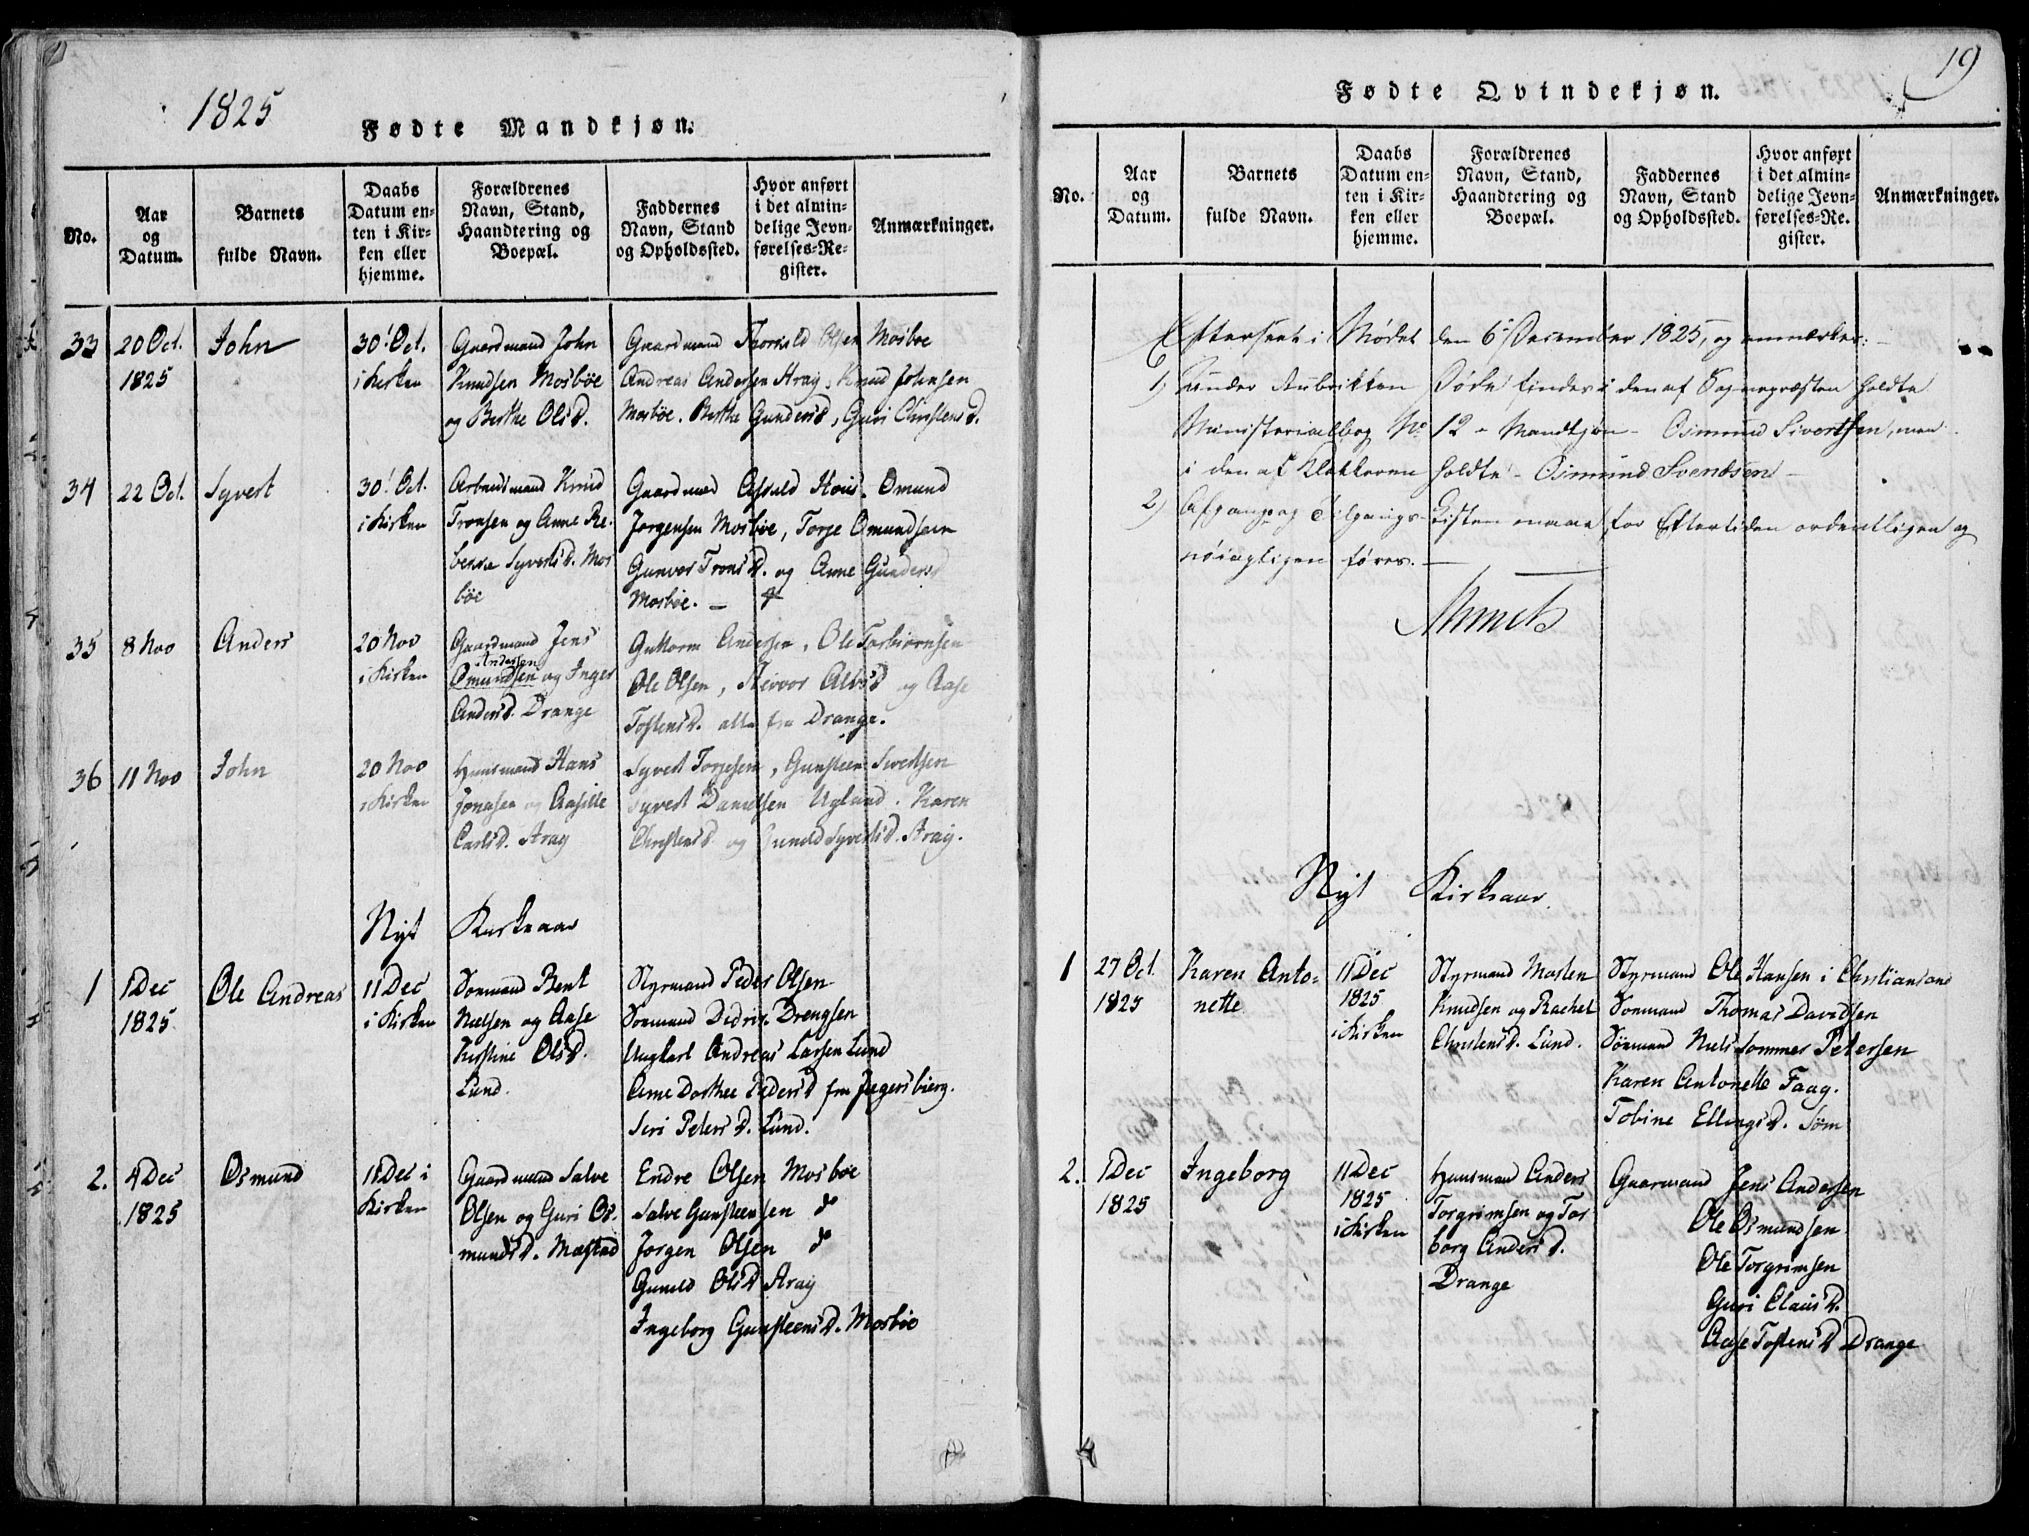 1825
Fødte Mandkjøn.
No.
Aar
og
Datum.
Barnets
fulde Navn.
Daabs
Datum en-
ten i Kir-
ken eller
hjemme.
Forældrenes
Navn, Stand,
Haandtering og
Boepæl.
Faddernes
Navn, Stand
og Opholdssted.
Hvor anført
i det almin-
delige Jevn-
førelses-Re-
gister.
Anmærkninger.
33
20 Oct.
1825
John
30' Oct.
i Kirken
Gaardmand John
Knudsen Mosbøe
og Berthe OlsD.
Gaardmand Thorkild Olsen Mosbøe
Andreas Andersen Aray, Knud Johnsen
Mosbøe. Berthe GundersD, Guri ChristensD.
34
22 Oct.
Syvert
30' Oct.
i Kirken
Arbeidsmand Knud
Tronsen og Anne Re-
becca SyvertsD. Mos
bøe
Gaardmand Omund
Jørgensen Mosbøe, Torje Omundsen
Gunvor TronsD. og Anne Gunders
Mosbøe.
35
8 Nov
Anders
20 Nov
i Kirken
Gaardmand Jens
Andersen
Omundsen og Inger
AndersD. Drange
Guttorm Andersen, Ole Torbiørnsen
Ole Olsen, og Aase
TostensD. alle fra Drange.
36
11 Nov
John
20 Nov
i Kirken
Huusmand Hans
Jonasen og Aasille
CarlsD. Aray
Syvert Torjesen, Gunsteen Sivertsen
Syvert Danielsen Ugland. Karen
ChristensD og Gunild SyvertsD. Araig.
Nyt Kirkeaar
1
1 Dec
1825
Ole Andreas
11 Dec
i Kirken
Sømand Bent
Nielsen og Aase
Kirstine OlsD.
Lund.
Styrmand Peder Olsen
Sømand Didrik Drengsen
Ungkarl Andreas Larsen Lund
Anne Dorthea PedersD fra Jegersbierg.
Siri PetersD. Lund.
2.
4 Dec
1825
Osmund
11 Dec i
Kirken
Gaardmand Salve
Olsen og Guri Os-
mundsD. Mæstad
Endre Olsen Mosbøe
Salve Gunsteensen do
Jørgen Olsen do
Gunild OlsD Araig
Ingeborg GunsteensD. Mosbøe
19
Fødte Qvindekjøn.
No.
Aar
og
Datum.
Barnets
fulde Navn.
Daabs
Datum en-
ten i Kir-
ken eller
hjemme.
Forældrenes
Navn, Stand,
Haandtering og
Boepæl.
Faddernes
Navn, Stand
og Opholdssted.
Hvor anført
i det almin-
delige Jevn-
førelses-Re-
gister.
Anmærkninger.
Efterseet i Mødet den 6 December 1825, og anmærkes:
1) under Rubrikken Døde findes i den af Sognepræsten holdte
Ministerialbog No 12 - Mandkjøn - Osmund Sivertsen, men
i den af Klokkeren holdte - Osmund Svendsen -
2) Afgangs og Tilgangs-Listen maae for Eftertiden ordentligen og
nøiagtigen føres. -
Nyt Kirkeaar.
1
27 Oct.
1825
Karen Anto-
nette
11 Dec
1825
i Kirken
Styrmand Mosten
Knudsen og Rachel
ChristensD. Lund.
Styrmand Ole Hansen i Christiansand
Sømand Thomas Davidsen
Sømand Niels Sommer Petersen
Karen Antonette Faag.
Tobine EllingsD. Søm
2.
1 Dec
1825
Ingeborg
11 Dec
1825
i Kirken
Huusmand Anders
Torgrimsen og Tor
borg AndersD.
Drange
Gaarmand Jens Andersen
Ole Osmundsen
Ole Torgrimsen
Guri ClausD.
Aase TostensD Drange